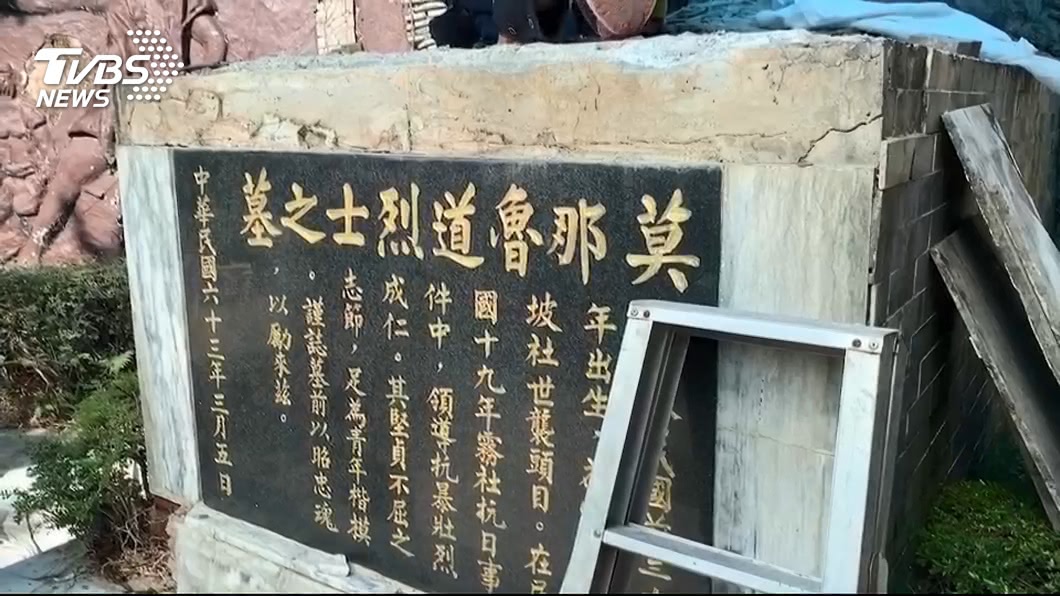 TVBS
NEWS
莫那魯道烈士之墓
國前三
年出生
坡社世襲頭目。在民
國十九年霧社抗日事
件中，領導抗暴壯烈
成仁。其堅貞不屈之
志節，足為青年楷模
。謹誌墓前以昭忠魂
，以勵來茲。
中華民國六十三年三月五日